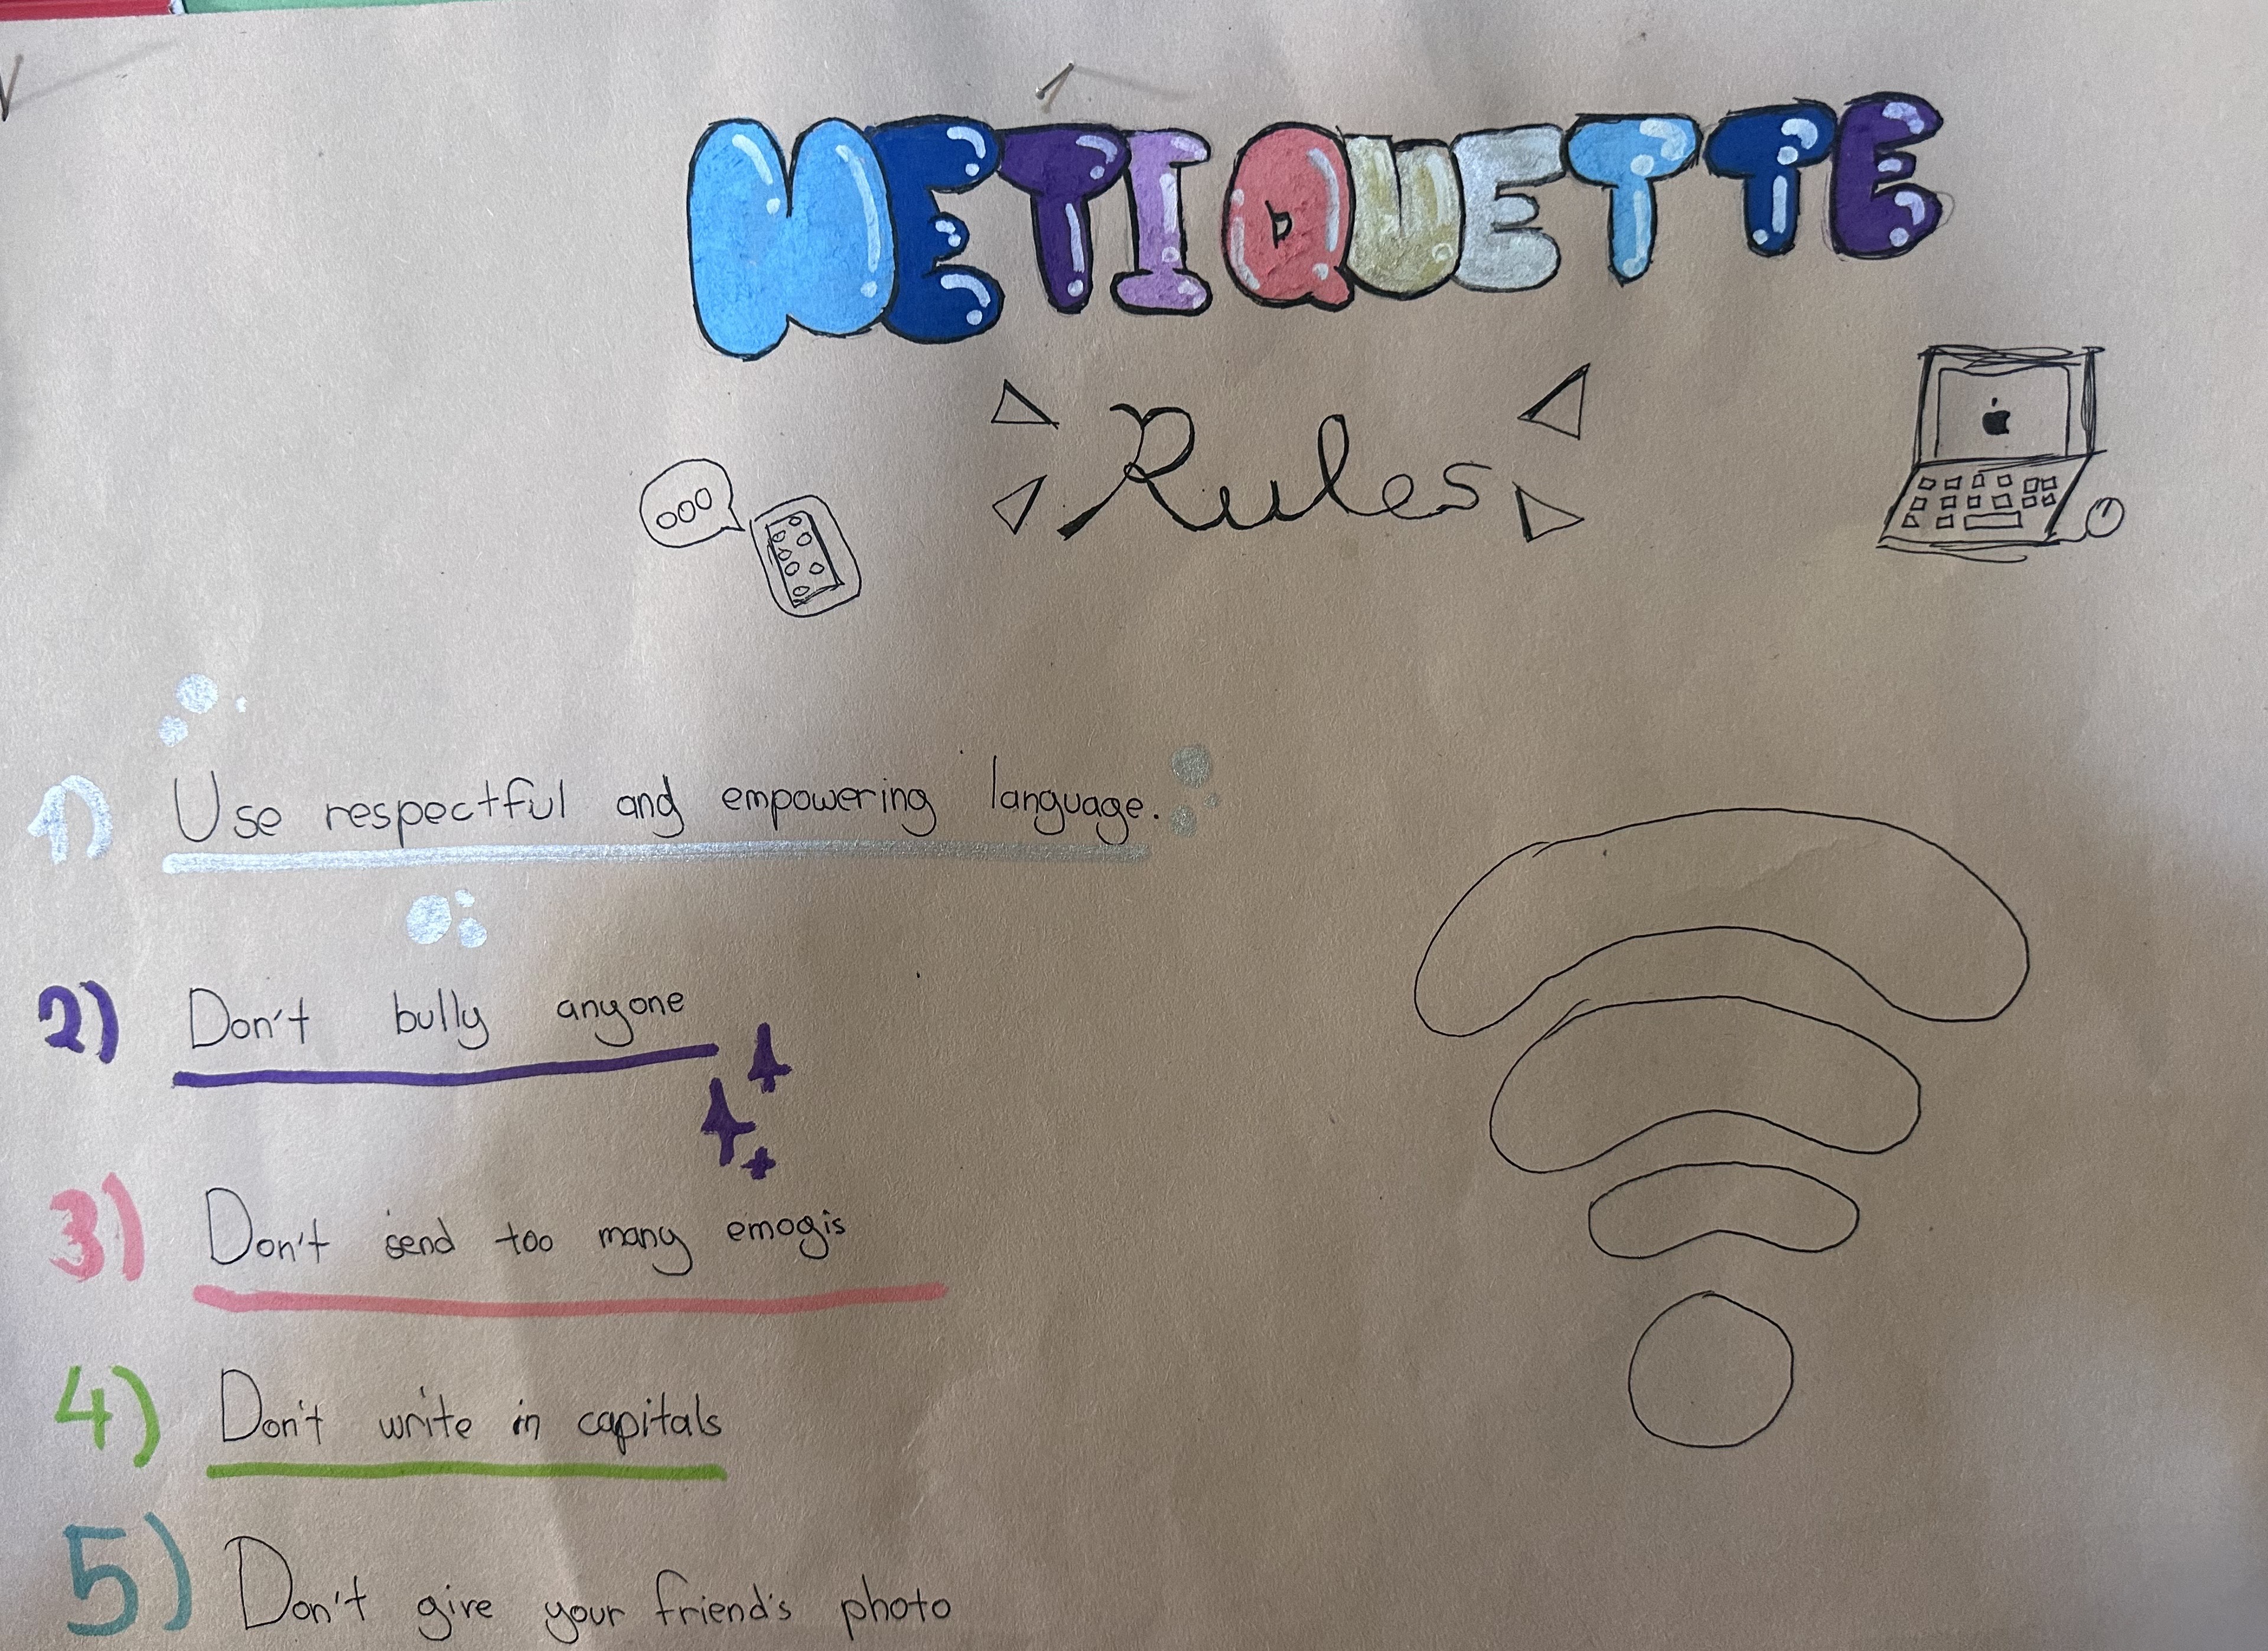 NETIQUETTE
Rules
1) Use respectful and empowering language.
2) Don't bully anyone
3) Don't send too many emogis
4) Don't write in capitals
5) Don't give your friend's photo